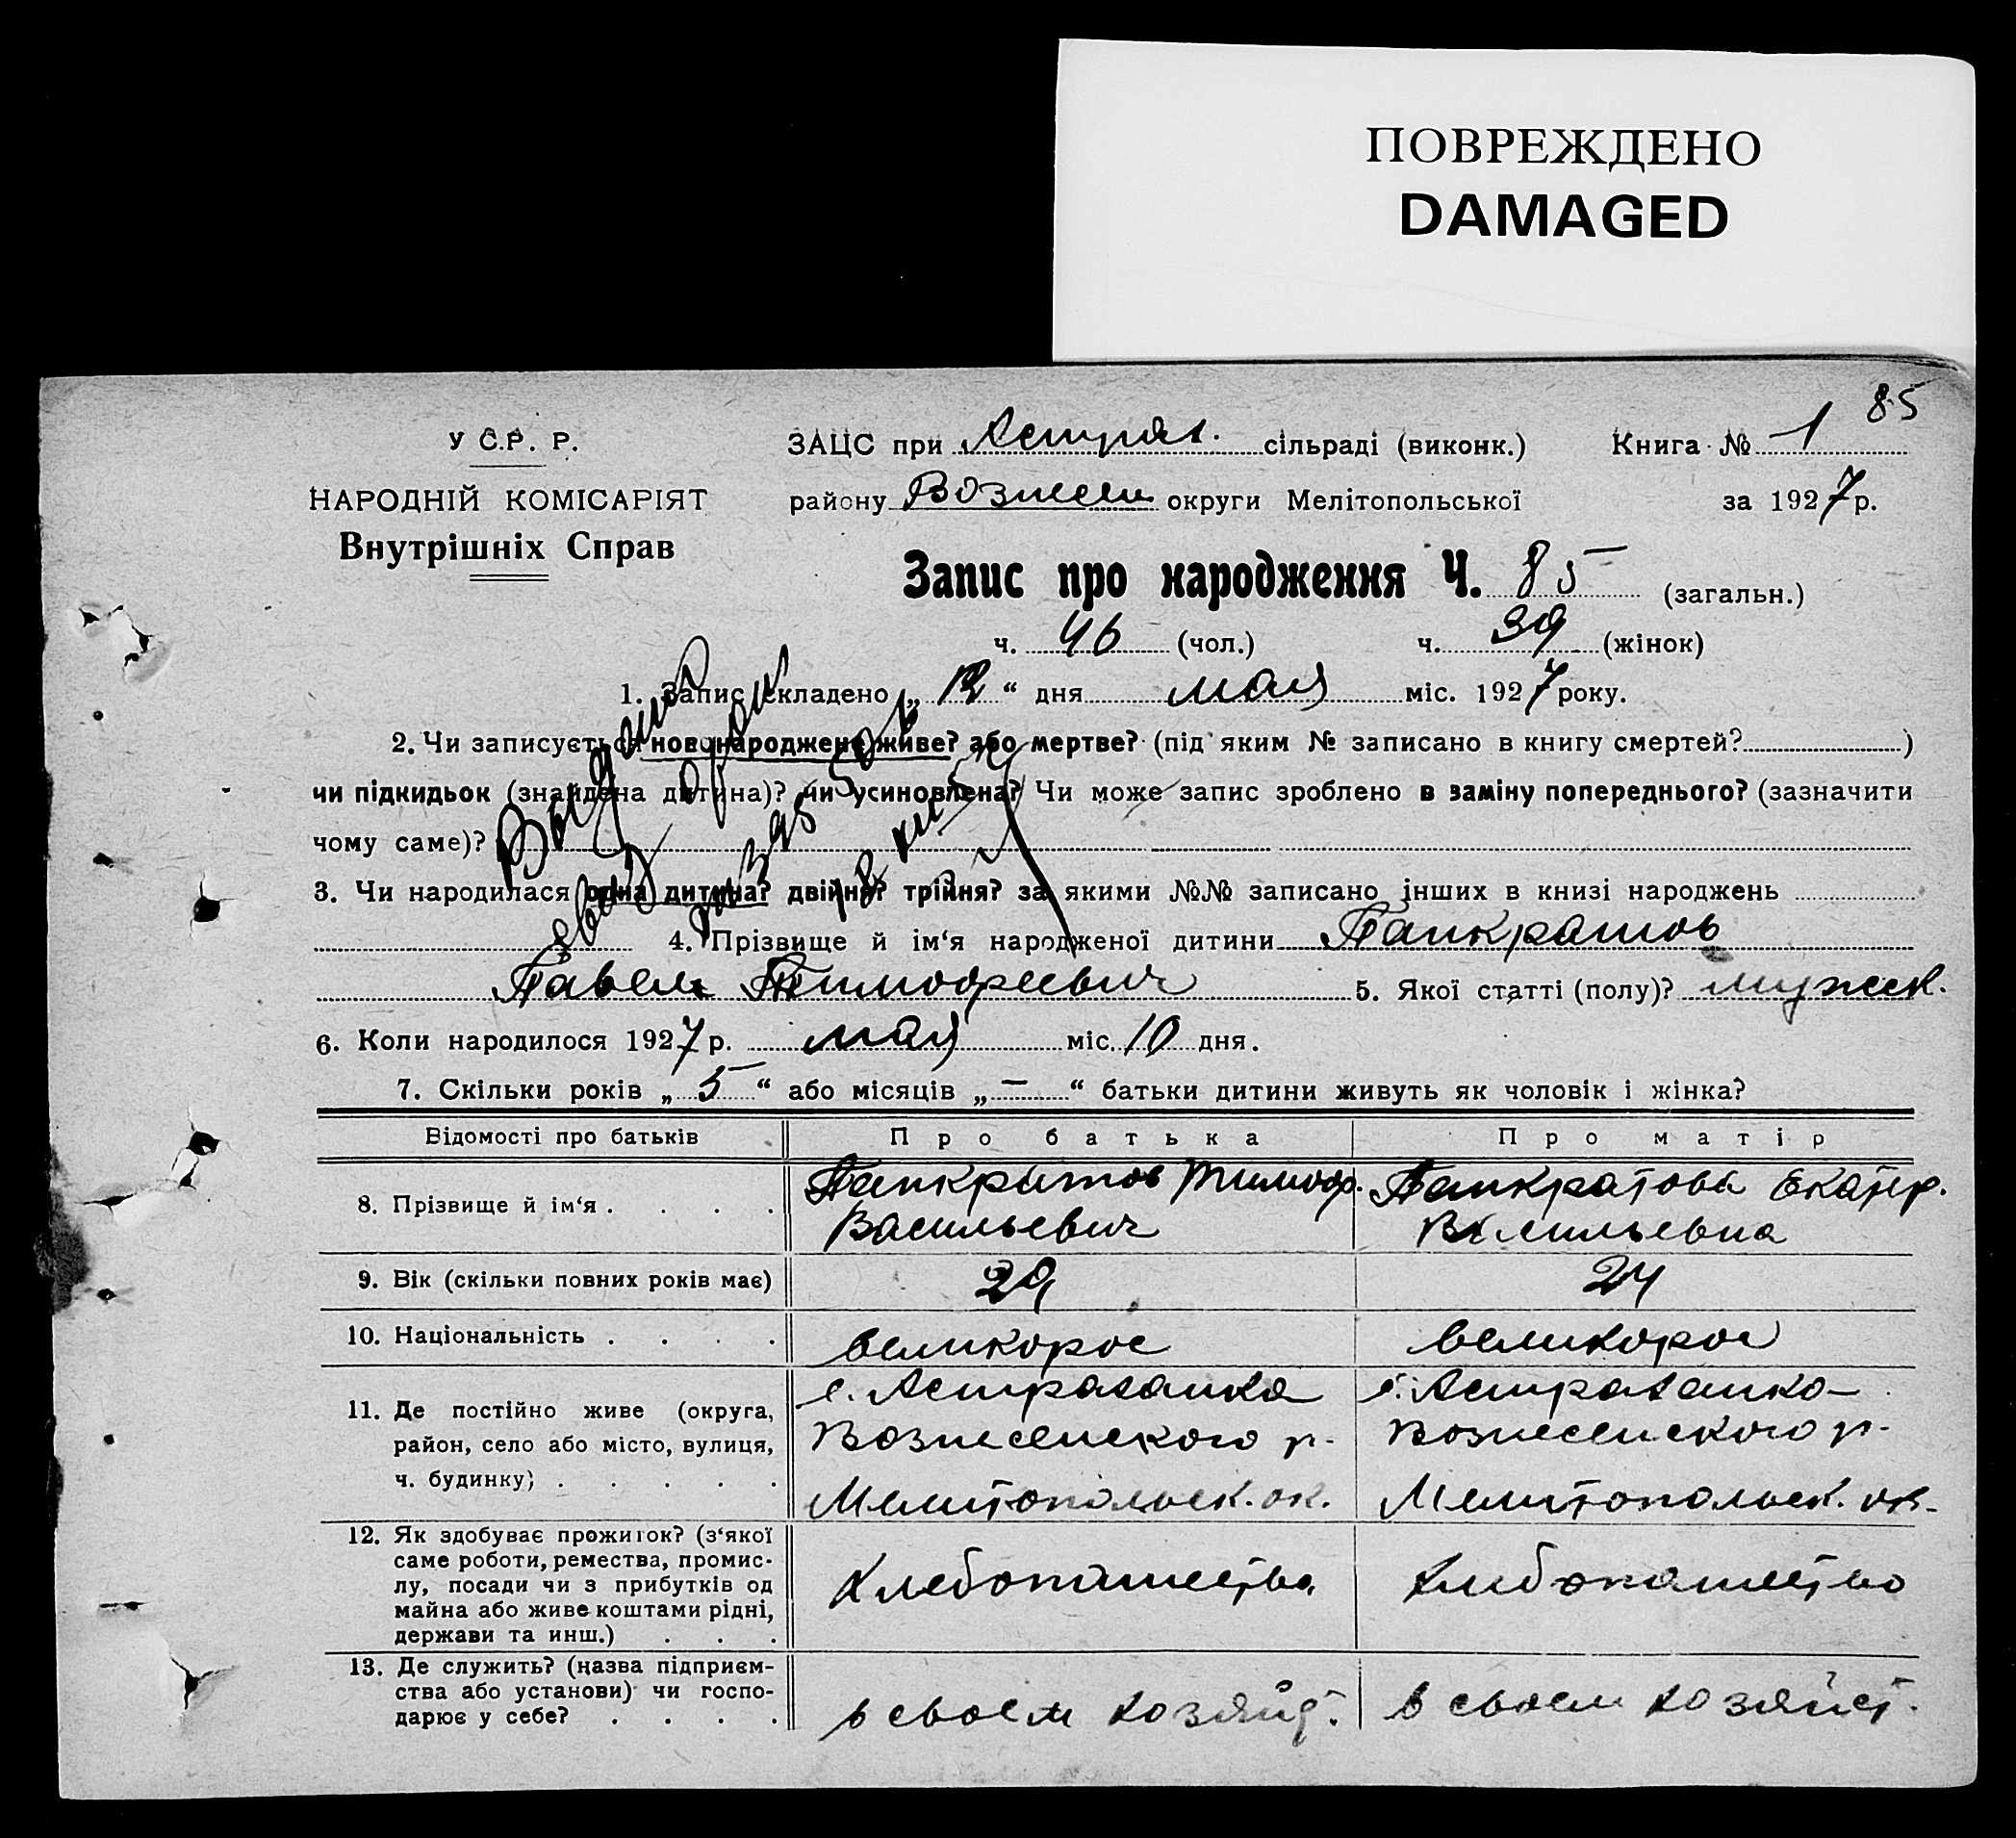 ПОВРЕЖДЕНО
DAMAGED
85
У С.Р. Р.
НАРОДНІЙ КОМІСАРІЯТ
Внутрішніх Справ
ЗАЦС при Астрах. сільраді (виконк.) Книга № 1
району Вознесен округи Мелітопольської за 1927 р.
Запис про народження Ч. 85 (загальн.)
ч. 46 (чол.) ч. 39 (жінок)
1. Запис складено „ 12 “ дня мая міс. 1927 року.
2. Чи записується новонароджене живе? або мертве? (під яким № записано в книгу смертей? )
чи підкидьок (знайдена дитина)? чи усиновлена? Чи може запис зроблено в заміну попереднього? (зазначити
чому саме)?
3. Чи народилася одна дитина? двійня? трійня? за якими №№ записано інших в книзі народжень
4. Прізвище й ім‘я народженої дитини Панкратов
Павел Тимофеевич 5. Якої статті (полу)? мужск.
6. Коли народилося 1927 р. мая міс. 10 дня.
7. Скільки років „ 5 “ або місяців „ — “ батьки дитини живуть як чоловік і жінка?
Відомості про батьків Про батька Про матір
8. Прізвище й ім‘я . . . . Панкратов Тимоф. Васильевич Панкратова Екатер. Васильевна
9. Вік (скільки повних років має) 29 24
10. Національність . . . . великорос великорос
11. Де постійно живе (округа, с. Астраханка с. Астраханка
район, село або місто, вулиця, Вознесенского р. Вознесенского р.
ч. будинку) . . . . . Мелитопольск. ок. Мелитопольск. ок.
12. Як здобуває прожиток? (з‘якої
саме роботи, ремества, промис-
лу, посади чи з прибутків од Хлебопашество Хлебопашество
майна або живе коштами рідні,
держави та инш.) . . .
13. Де служить? (назва підприєм-
ства або установи) чи госпо- в своем хозяйст. в своем хозяйст.
дарює у себе? . . . .